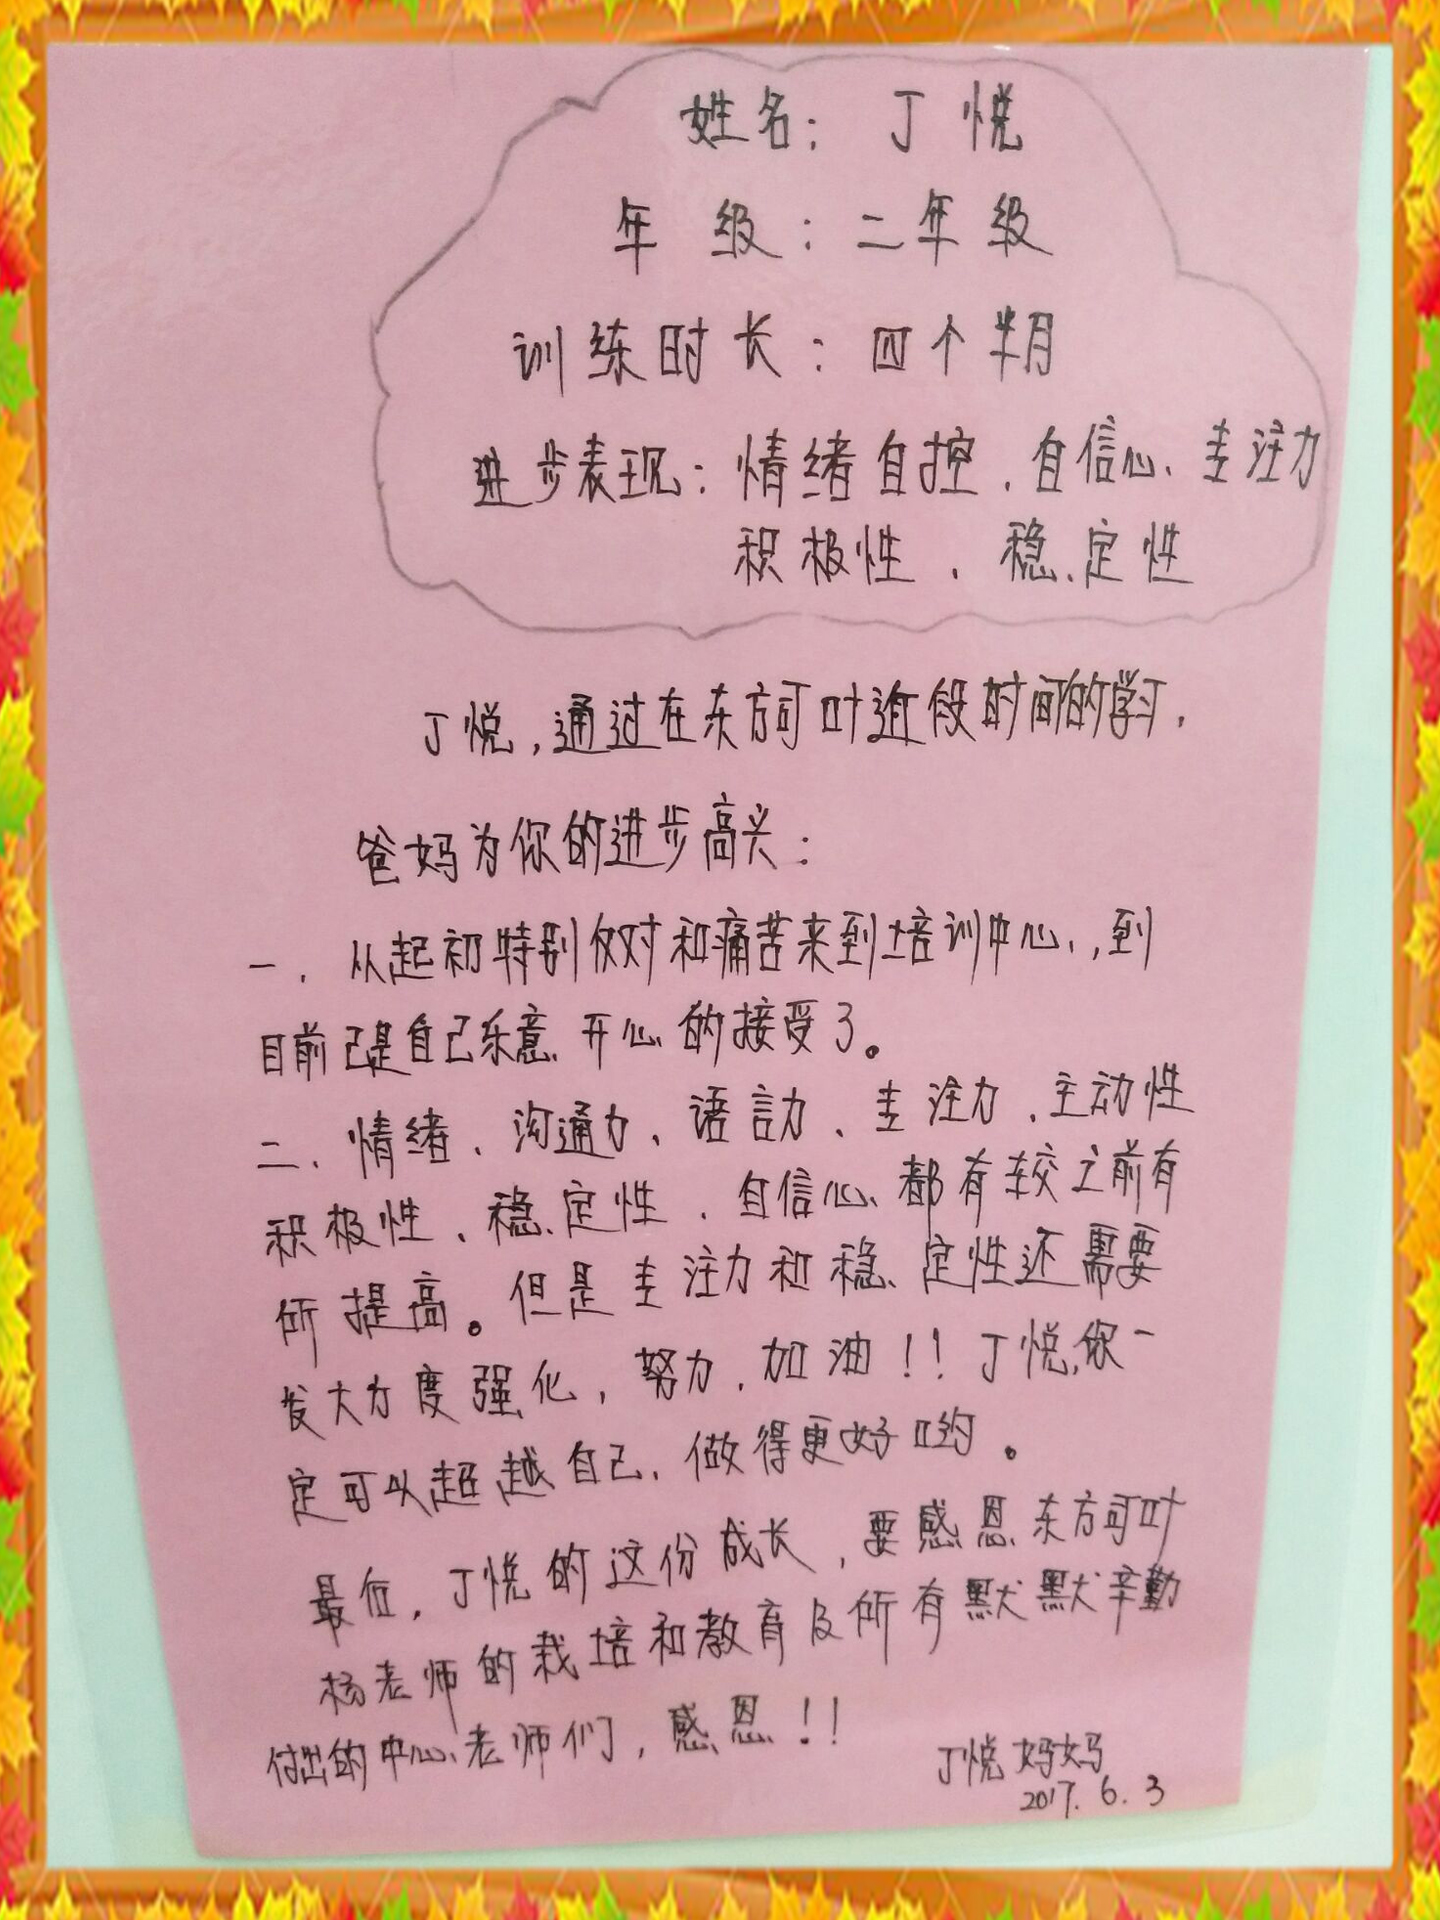 姓名：丁悦
年级：二年级
训练时长：四个半月
进步表现：情绪自控、自信心、专注力
积极性、稳定性
丁悦，通过在东方可叶近段时间的学习，
爸妈为你的进步高兴：
一、从起初特别仇对和痛苦来到培训中心，到
目前已是自己乐意、开心的接受了。
二、情绪、沟通力、语言力、专注力、主动性
积极性、稳定性、自信心都有较之前有
所提高。但是专注力和稳定性还需要
发大力度强化，努力，加油！！丁悦，你一
定可以超越自己，做得更好哟。
最后，丁悦的这份成长，要感恩东方可叶
杨老师的栽培和教育及所有默默辛勤
付出的中心老师们，感恩！！
丁悦妈妈
2017.6.3